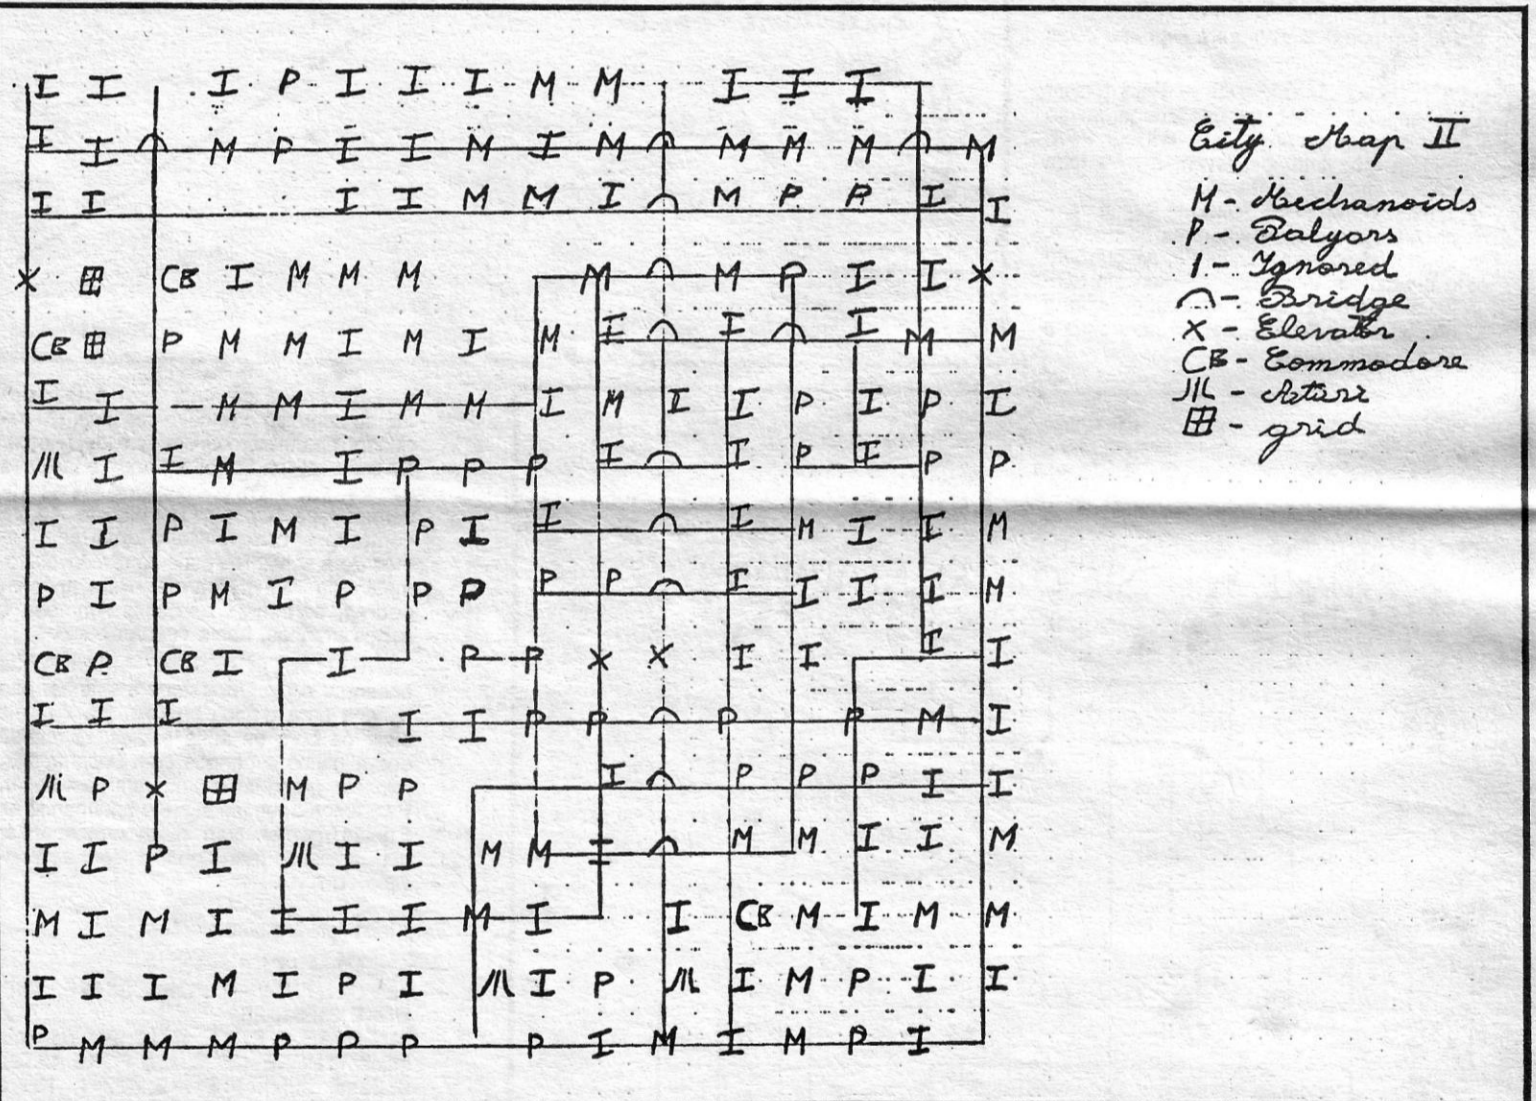 I I I P I I I M M I I I
I I M P I I M I M M M M M
I I I I M M I M P P I I
X CB I M M M M M P I I X
CB P M M I M I M I I I M M
I I M M I M M I M I I P I P I
I I M I P P P I I P I P P
I I P I M I P I I I M I I M
P I P M I P P P P P I I I I M
CB P CB I I P P X X I I I I
I I I I I P P P P M I
P X M P P I P P P I I
I I P I I I M M I M M I I M
M I M I I I I M I I CB M I M M
I I I M I P I I P I M P I I
P M M M P P P P I M I M P I
City Map II
M - Mechanoids
P - Palyars
I - Ignored
Bridge
X - Elevator
CB - Commodore
Atari
grid